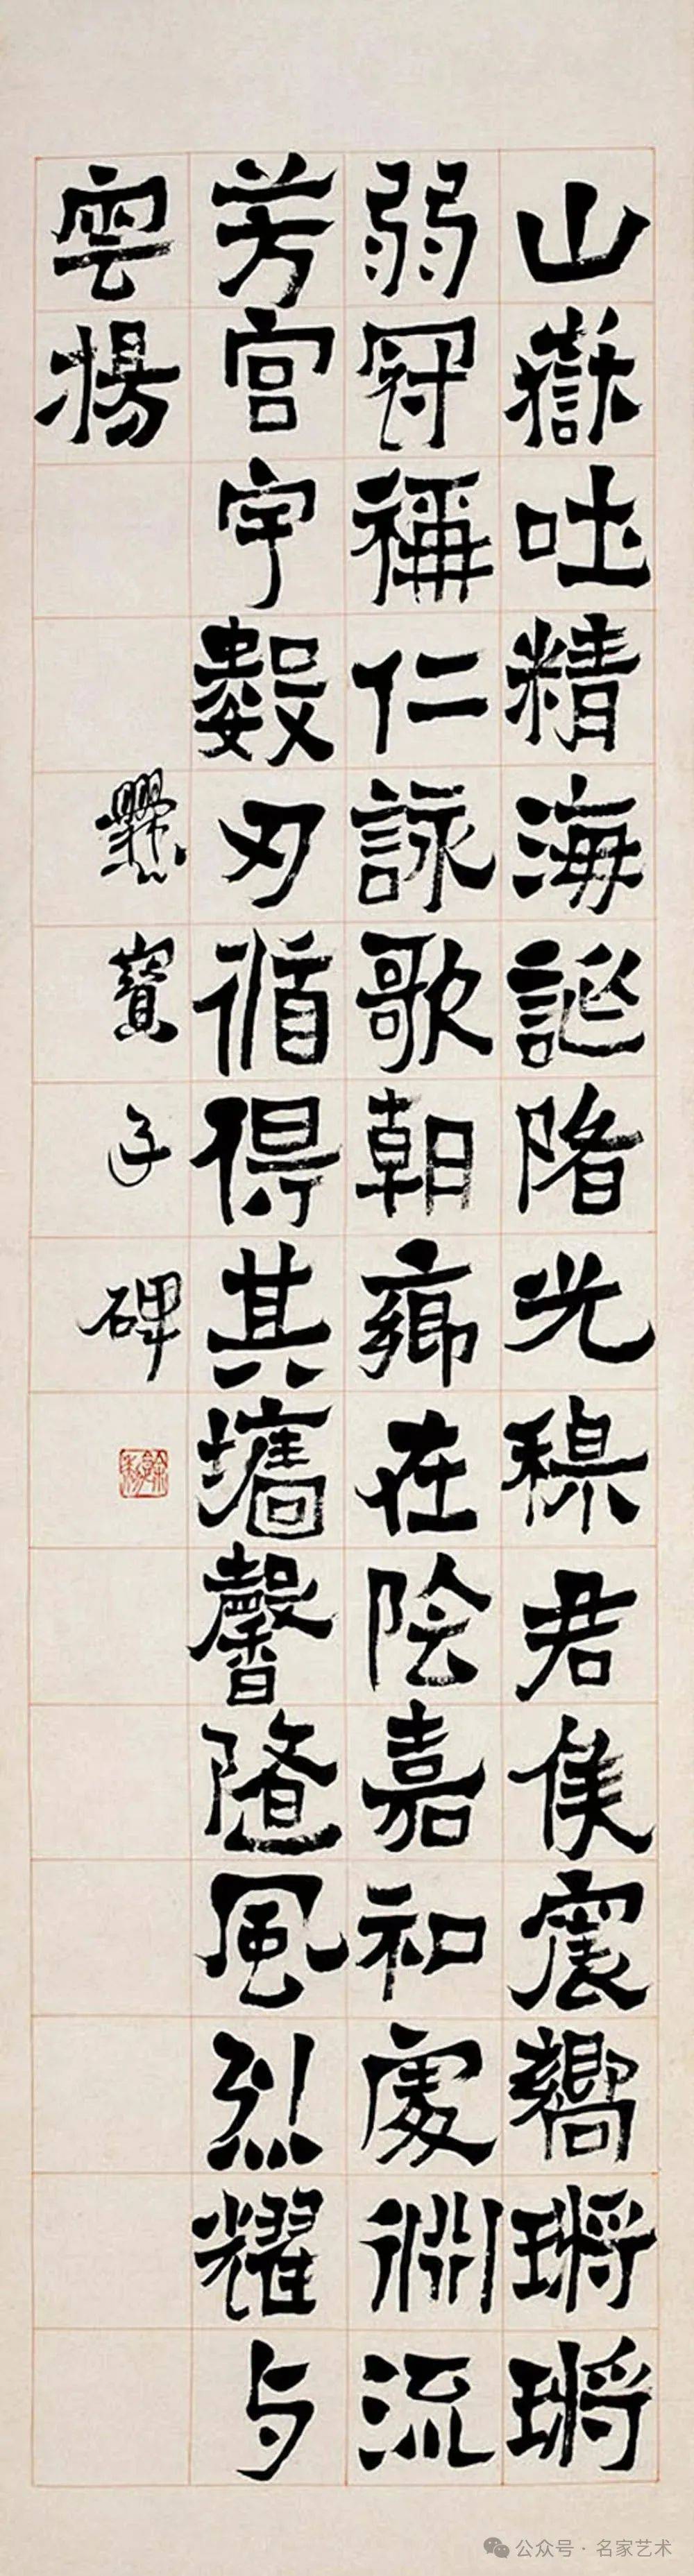 山嶽吐精海誕陏光穆君侯震嚮鏘鏘
弱冠稱仁詠歌朝鄉在陰嘉和處淵流
芳宮宇數刃循得其墻馨隨風烈耀与
雲揚
爨寶子碑
公众号·名家艺术